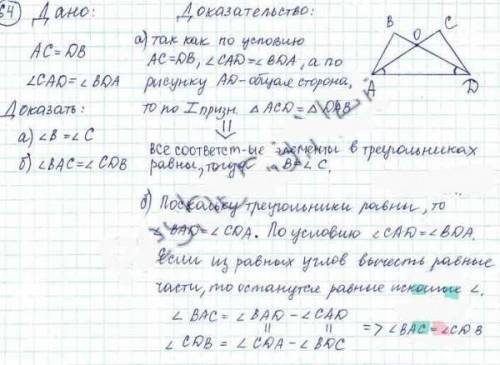 64 Дано:
AC = DB
∠CAD = ∠BDA
Доказать:
а) ∠B = ∠C
б) ∠BAC = ∠CDB
Доказательство:
а) так как по условию
AC = DB, ∠CAD = ∠BDA, а по
рисунку AD - общая сторона,
то по I призн. △ACD = △DAB
⇓
все соответст-ые элементы в треугольниках
равны, тогда ∠B = ∠C.
б) Поскольку треугольники равны, то
∠BAD = ∠CDA. По условию ∠CAD = ∠BDA.
Если из равных углов вычесть равные
части, то останутся равные искомые ∠.
∠BAC = ∠BAD - ∠CAD
|| ||
∠CDB = ∠CDA - ∠BDC
=> ∠BAC = ∠CDB
B C
O
A D